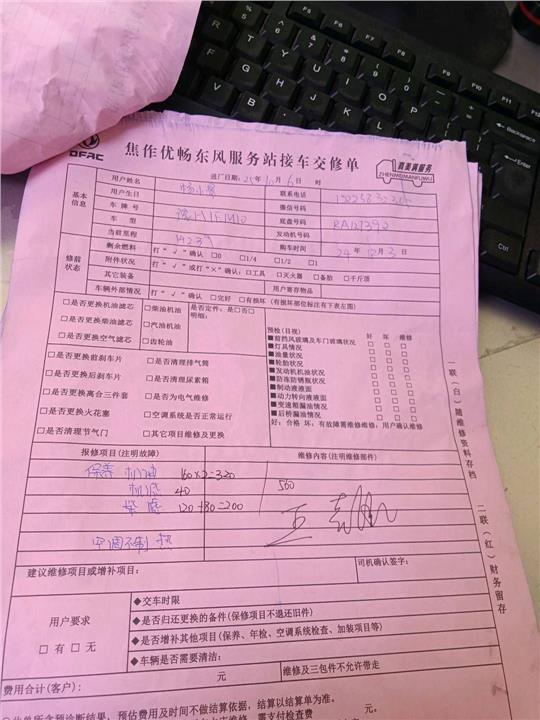 DFAC
焦作优畅东风服务站接车交修单
真美满服务
ZHENMEIMANFUWU
基本信息
用户姓名
进厂日期: 25年 10月 6日 时
用户生日
联系电话
车牌号
微信号码
车 型
底盘号码 RA127390
当前里程 14239
发动机号码
购车时间 24年 12月3日
修前状态
剩余燃料 打“√”确认 □0 □1/4 □1/2 □1
附件状况 打“√”或打“×”确认:□工具 □灭火器 □备胎 □千斤顶
其它装备 用户寄存物品
车辆外部情况 打“√”确认 □完好 □有损坏(有损坏部位标注有下表左图)
□是否更换机油滤芯 □柴油机油
□是否更换柴油滤芯 □汽油机油
□是否更换空气滤芯 □齿轮油
是否定件:是□否□
明细:
□是否更换前刹车片 □是否清理排气筒
□是否更换后刹车片 □是否清理尿素箱
□是否更换离合三件套 □是否为电气维修
□是否更换火花塞 □空调系统是否正常运行
□是否清理节气门 □其它项目维修及更换
预检(目视) 好 坏 维修
■前挡风玻璃及车门玻璃状况 □ □ □
■灯具情况 □ □ □
■油量状况 □ □ □
■轮胎状况 □ □ □
■发动机机油状况 □ □ □
■防冻防锈瓶状况 □ □ □
■制动液液面 □ □ □
■动力转向液液面 □ □ □
■变速箱漏油情况 □ □ □
■后桥漏油情况 □ □ □
好:合格 坏:有故障需维修维修:用户确认维修
报修项目(注明故障) 维修内容(注明维修部件)
保养 机油 160×2=320
机滤 40 560
柴滤 120+80=200
空调不制热
建议维修项目或增补项目:
司机确认签字:
用户要求
□有 □无
◆交车时限
◆是否归还更换的备件(保修项目不退还旧件)
◆是否增补其他项目(保养、年检、空调系统检查、加装项目等)
◆车辆是否需要清洁:
费用合计(客户): 元
维修及三包件不允许带走
预估费用及时间不做结算依据,结算以结算单为准。
元。
一联(白)随维修资料存档
二联(红)财务留存
F6
F7
F8
F9
F10
F11
F12
Backspace
Enter
Shift
Ctrl